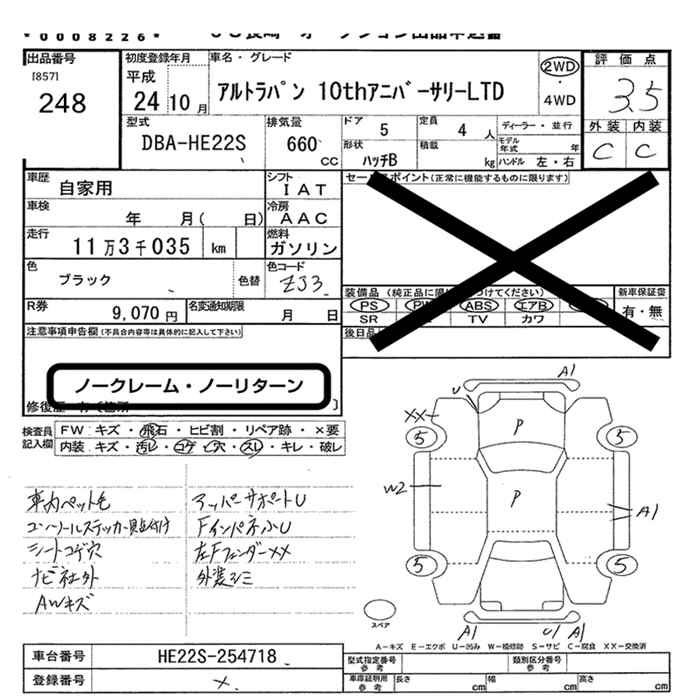 *0008226*
出品番号
[857]
248
初度登録年月
平成
24 10 月
車名・グレード
アルトラパン 10thアニバーサリーLTD
2WD
・
4WD
評 価 点
3.5
外 装 内 装
C C
型式
DBA-HE22S
排気量
660
CC
ドア
5
定員
4 人
ディーラー・並行
形状
ハッチB
積載
kg
モデル年式 年
ハンドル 左・右
車歴
自家用
シフト
IAT
車検
年 月( 日)
冷房
AAC
走行
11万3千035 km
燃料
ガソリン
色
ブラック
色替
色コード
ZJ3
R券
9,070 円
名変通知期限
月 日
セールスポイント(正常に機能するものに限ります)
PS PW ABS エアB
SR TV カワ
新車保証書
有・無
注意事項申告欄(不具合内容等は具体的に記入して下さい)
ノークレーム・ノーリターン
検査員記入欄
FW キズ・飛石・ヒビ割・リペア跡・×要
内装 キズ・汚レ・コゲ・穴・スレ・キレ・破レ
車内ペット毛
コンソールステッカー貼付け
シートコゲ穴
ナビ社外
AWキズ
アッパーサポートU
FインパネふU
左Fフェンダーxx
外装シミ
A1
U
XX
P
5 5
W2
P
A1
5 5
スペア
A1 U1 A1
A-キズ E-エクボ U-凹み W-補修跡 S-サビ C-腐食 XX-交換済
車台番号
HE22S-254718
登録番号
×
型式指定番号
参考
類別区分番号
参考
車庫証明用
参考
長さ cm
幅 cm
高さ cm